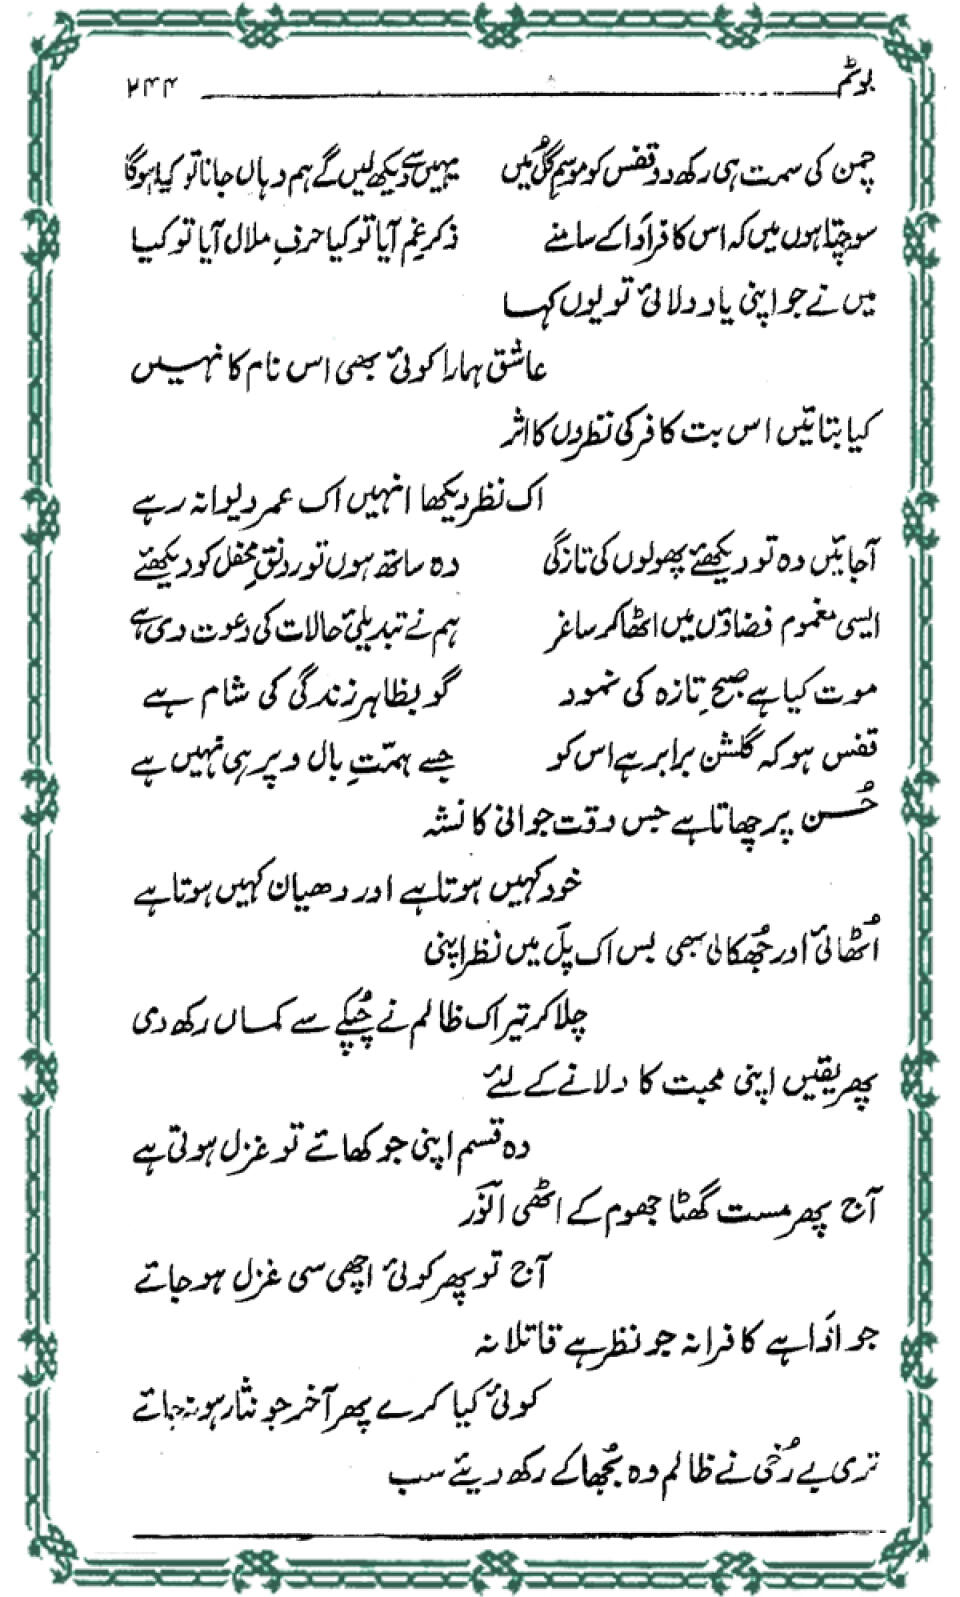 بوئم ۲۴۴
چمن کی سمت ہی رکھ دو قفس کو موسمِ گل میں یہیں سے دیکھ لیں گے ہم وہاں جانا تو کیا ہوگا
سوچتا ہوں میں کہ اس کافر اَدا کے سامنے ذکرِ غم آیا تو کیا حرفِ ملال آیا تو کیا
میں نے جو اپنی یاد دلائی تو یوں کہا
عاشق ہمارا کوئی بھی اس نام کا نہیں
کیا بتائیں اس بت کافر کی نظروں کا اثر
اک نظر دیکھا انہیں اک عمر دیوانہ رہے
آجائیں وہ تو دیکھئے پھولوں کی تازگی وہ ساتھ ہوں تو رونقِ محفل کو دیکھئے
ایسی مغموم فضاؤں میں اٹھا کر ساغر ہم نے تبدیلیٔ حالات کی دعوت دی ہے
موت کیا ہے صبحِ تازہ کی نمود گو بظاہر زندگی کی شام ہے
قفس ہو کہ گلشن برابر ہے اس کو جسے ہمّتِ بال و پر ہی نہیں ہے
حُسن پر چھاتا ہے جس وقت جوانی کا نشہ
خود کہیں ہوتا ہے اور دھیان کہیں ہوتا ہے
اُٹھائی اور جُھکالی بھی بس اک پَل میں نظر اپنی
چلا کر تیر اک ظالم نے چُپکے سے کماں رکھ دی
پھر یقیں اپنی محبت کا دلانے کے لئے
وہ قسم اپنی جو کھاتے تو غزل ہوتی ہے
آج پھر مست گھٹا جھوم کے اٹھی انوَر
آج تو پھر کوئی اچھی سی غزل ہو جائے
جو اَدا ہے کافرانہ جو نظر ہے قاتلانہ
کوئی کیا کرے پھر آخر جو نثار ہو نہ جائے
تری بے رُخی نے ظالم وہ بُجھا کے رکھ دیئے سب